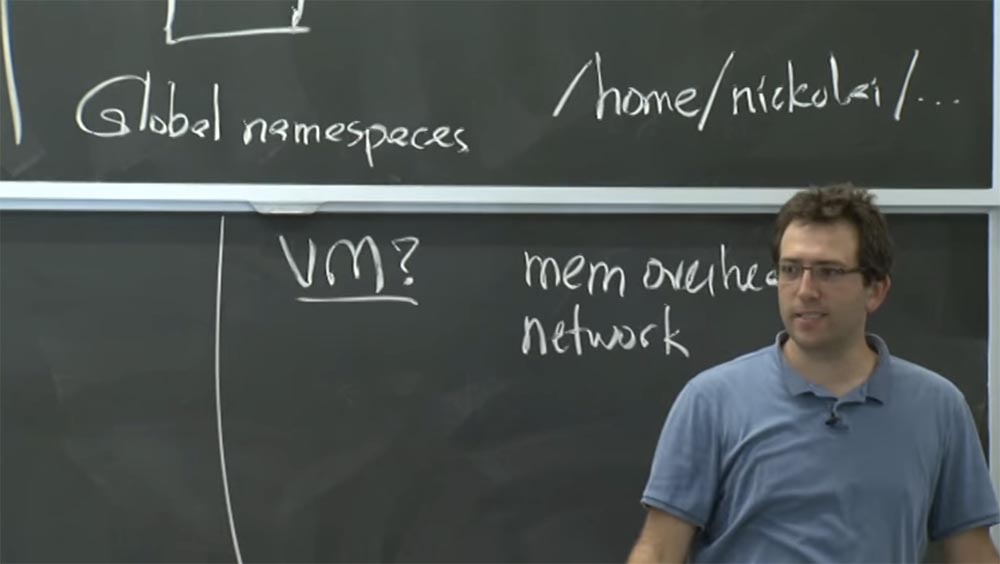 Global namespaces
/home/nickolai/...
VM?
mem overhea
network